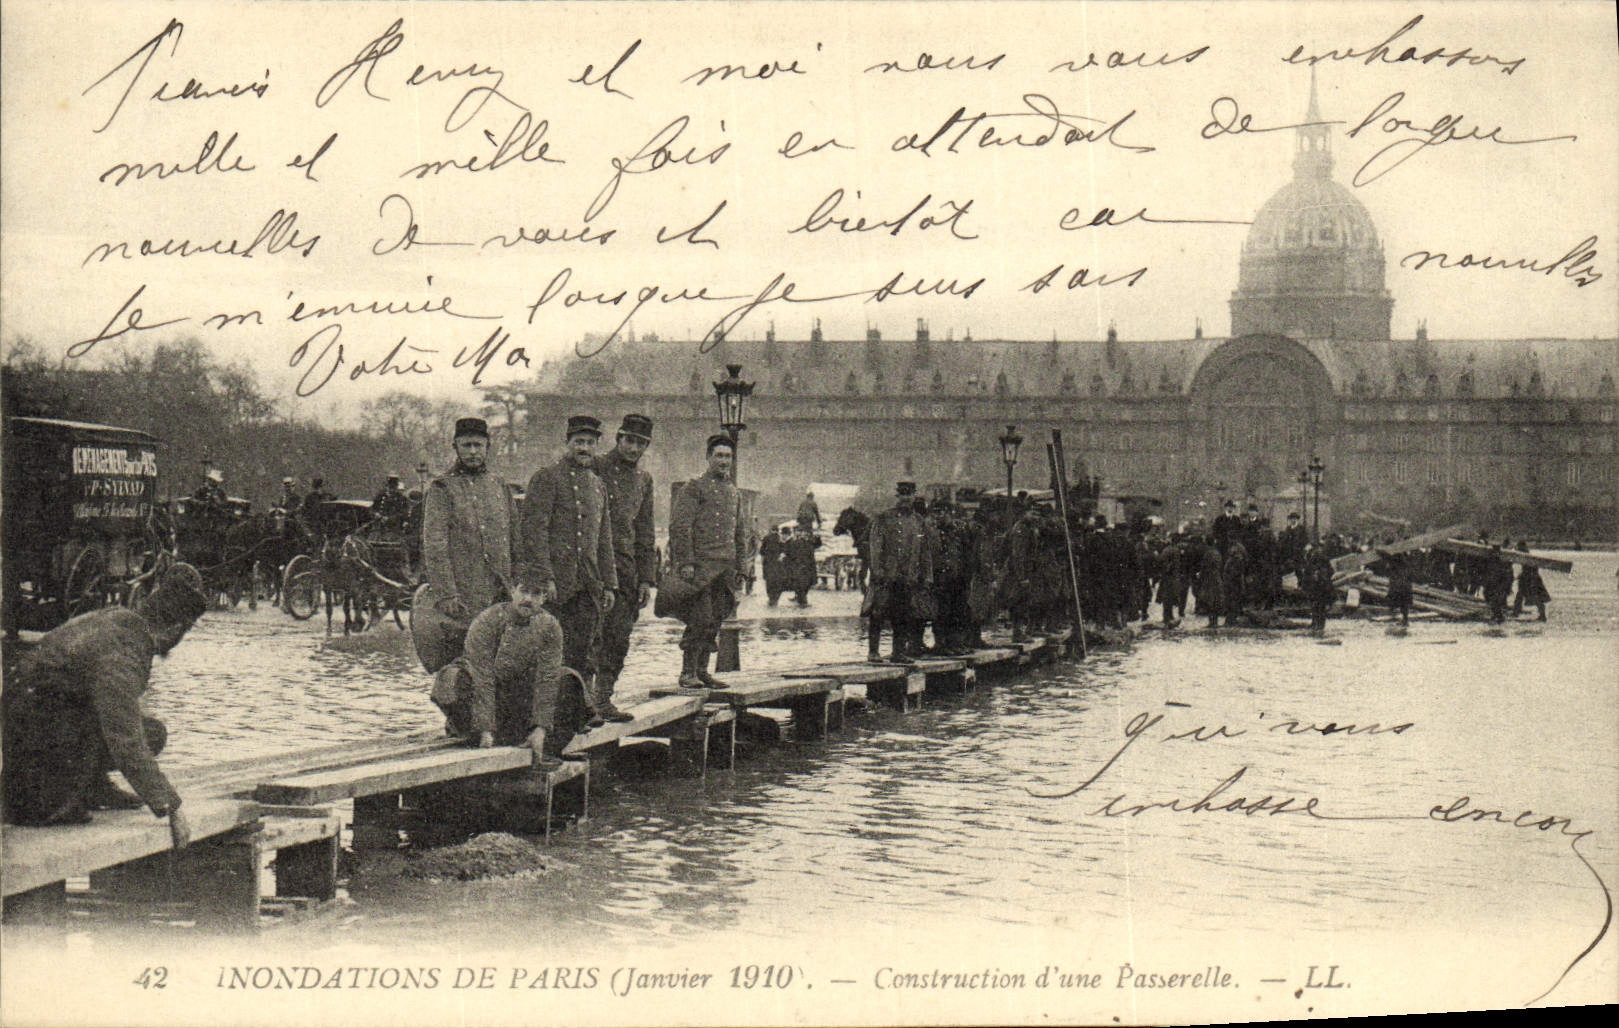 Francis Henry et moi nous vous embrassons
mille et mille fois en attendant de longue
nouvelles de vous et bientôt car
je m'ennuie lorsque je suis sans nouvelles
Votre
qui vous
embrasse encore
DEMENAGEMENTS PARIS
P. SYLVAIN
42 INONDATIONS DE PARIS (Janvier 1910). — Construction d'une Passerelle. — LL.